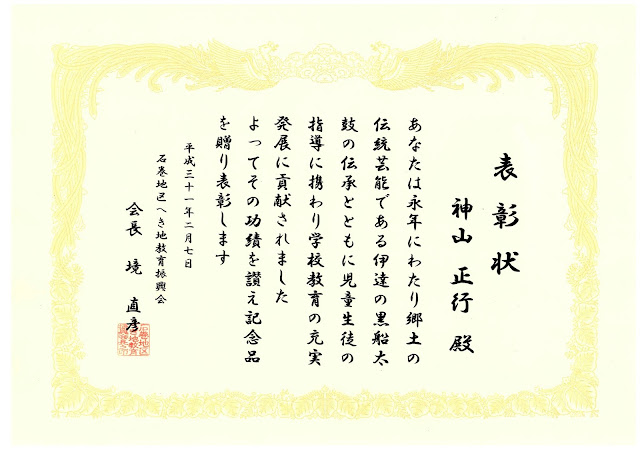 表彰状
神山 正行 殿
あなたは永年にわたり郷土の
伝統芸能である伊達の黒船太
鼓の伝承とともに児童生徒の
指導に携わり学校教育の充実
発展に貢献されました
よってその功績を讃え記念品
を贈り表彰します
平成三十一年二月七日
石巻地区へき地教育振興会
会長 境 直彦